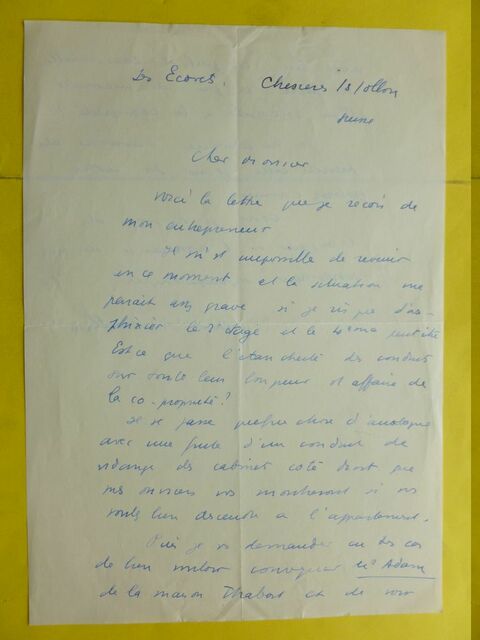 Les Ecovets. Chesières s/Ollon
Suisse
Cher Monsieur
Voici la lettre que je reçois de
mon entrepreneur
Il m'est impossible de revenir
en ce moment et la situation me
parait assez grave si je
le 2e étage et le 4eme
Est ce que l'étanchéité des conduits
sur toute leur longueur est affaire de
la co-propriété?
Il se passe quelque chose d'analogue
avec une fuite d'un conduit de
vidange des cabinets coté droit que
mes ouvriers vous montreront si vous
voulez bien descendre a l'appartement.
Puis je vous demander en tous cas
de bien vouloir convoquer Mr Adam
de la maison Thabost et de voir